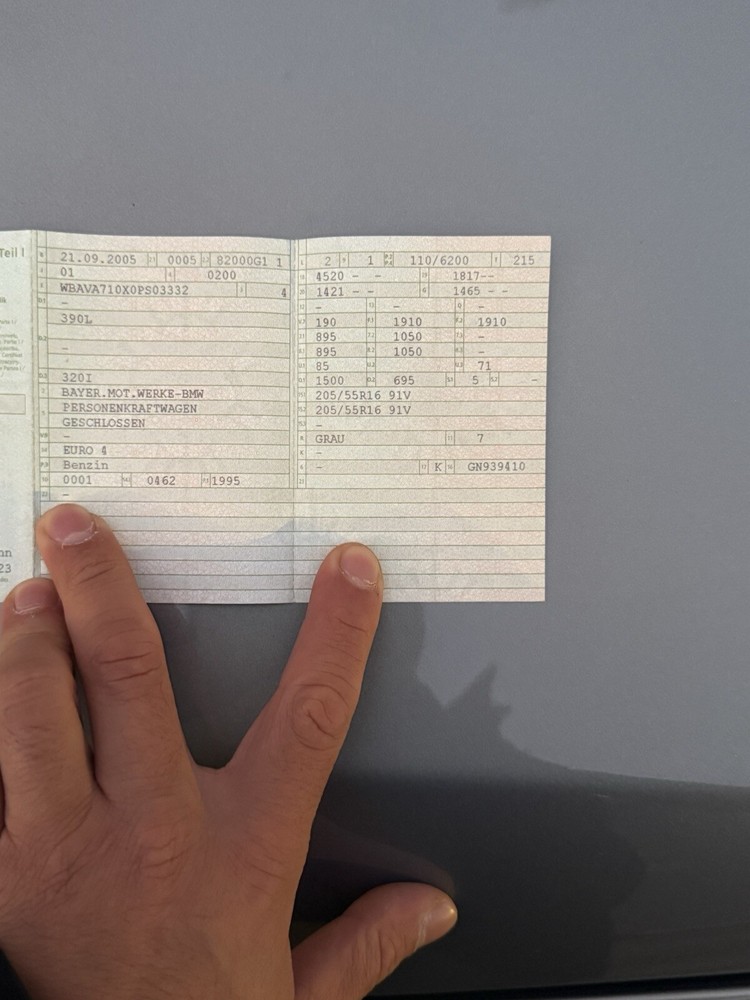 Teil I
21.09.2005 0005 82000G1 1
01 0200
WBAVA710X0PS03332 4
-
390L
-
-
320I
BAYER.MOT.WERKE-BMW
PERSONENKRAFTWAGEN
GESCHLOSSEN
-
EURO 4
Benzin
0001 0462 1995
-
2 1 110/6200 215
4520 - - 1817--
1421 - - 1465 - -
- - -
190 1910 1910
895 1050 -
895 1050 -
85 71
1500 695 5 -
205/55R16 91V
205/55R16 91V
-
GRAU 7
-
- K GN939410
23